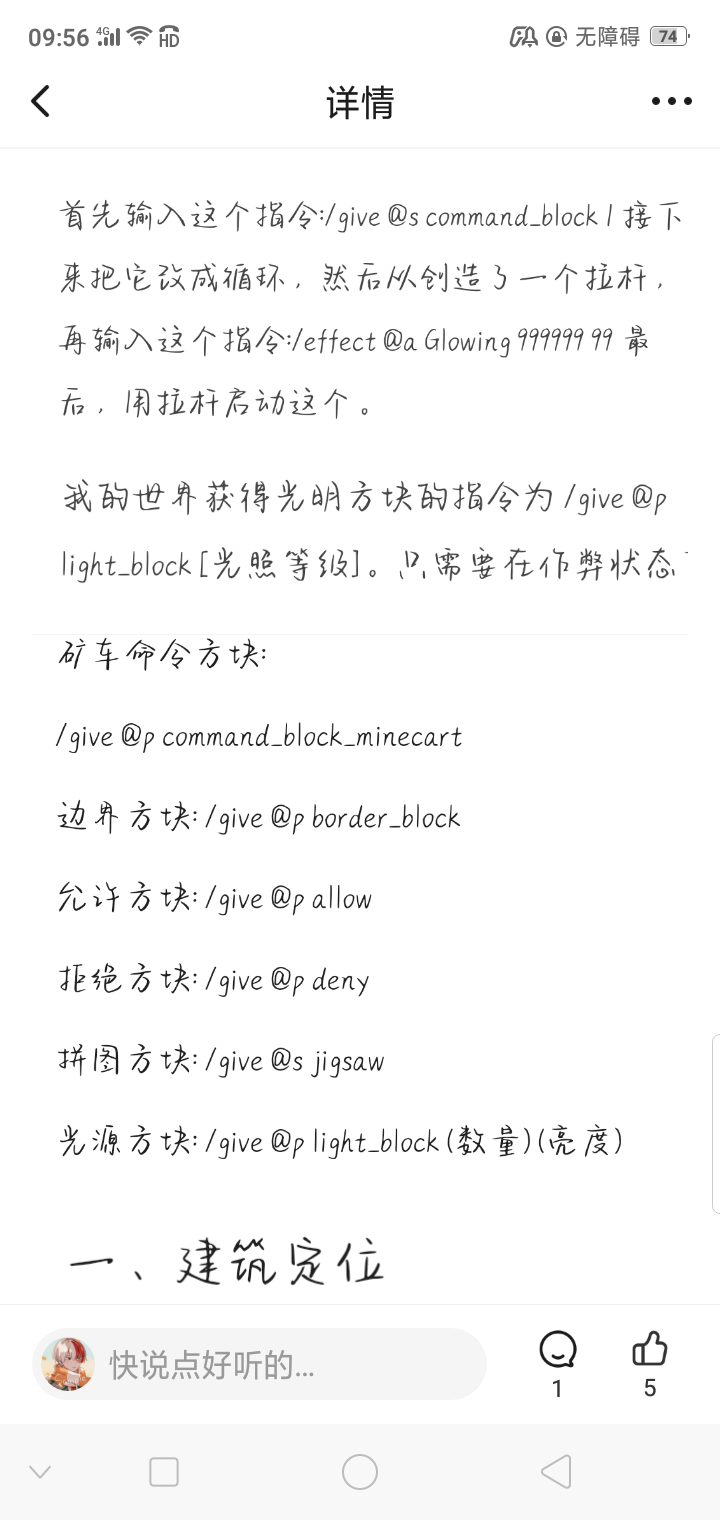 09:56 4G HD 无障碍 74
详情
首先输入这个指令:/give @s command_block 1 接下
来把它改成循环，然后从创造了一个拉杆，
再输入这个指令:/effect @a Glowing 999999 99 最
后，用拉杆启动这个。
我的世界获得光明方块的指令为 /give @p
light_block [光照等级]。只需要在作弊状态
矿车命令方块:
/give @p command_block_minecart
边界方块: /give @p border_block
允许方块: /give @p allow
拒绝方块: /give @p deny
拼图方块: /give @s jigsaw
光源方块: /give @p light_block (数量)(亮度)
一、建筑定位
快说点好听的...
1
5